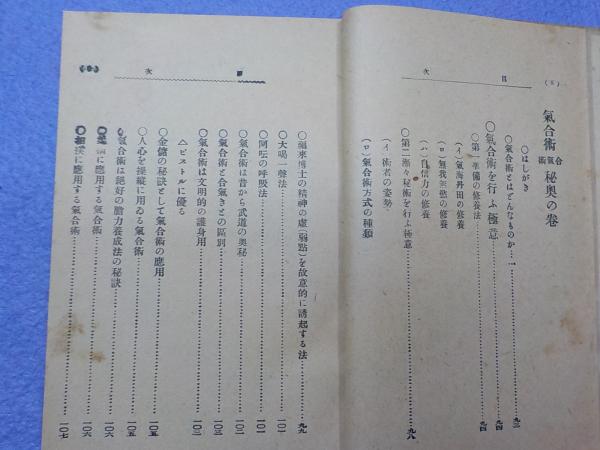 (8)
目次
氣合術
合氣術 秘奥の卷
〇はしがき
〇氣合術とはどんなものか…九三
〇氣合術を行ふ極意…九四
〇第一準備の修養法…九四
(イ)氣海丹田の修養
(ロ)無我無慾の修養
(ハ)自信力の修養
〇第二漸々秘術を行ふ極意…九八
(イ)術者の姿勢
(ロ)氣合術方式の種類
目次
來博士の精神の虛(弱點)を故意的に誘起する法…九九
〇大喝一聲法…一〇一
〇阿吽の呼吸法…一〇一
〇氣合術は昔から武道の奥秘…一〇二
〇氣合術と合氣との區別…一〇三
〇氣合術は文明的の護身用…一〇三
△ピストルに優る
〇金儲の秘訣として氣合術の應用…一〇五
〇人心を操縦に用ゐる氣合術…一〇五
〇氣合術は絕好の膽力養成法の秘訣…一〇六
に應用する氣合術…一〇六
〇相撲に應用する氣合術…一〇七